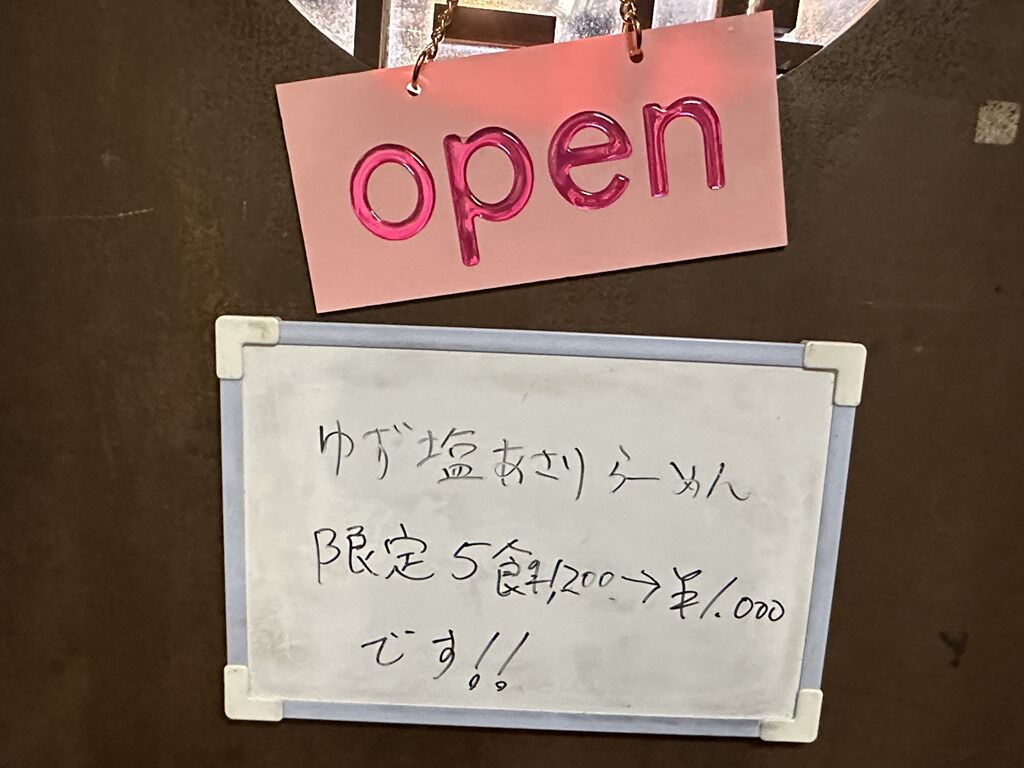 open
ゆず塩あさりらーめん
限定5食¥1,200→¥1.000
です!!